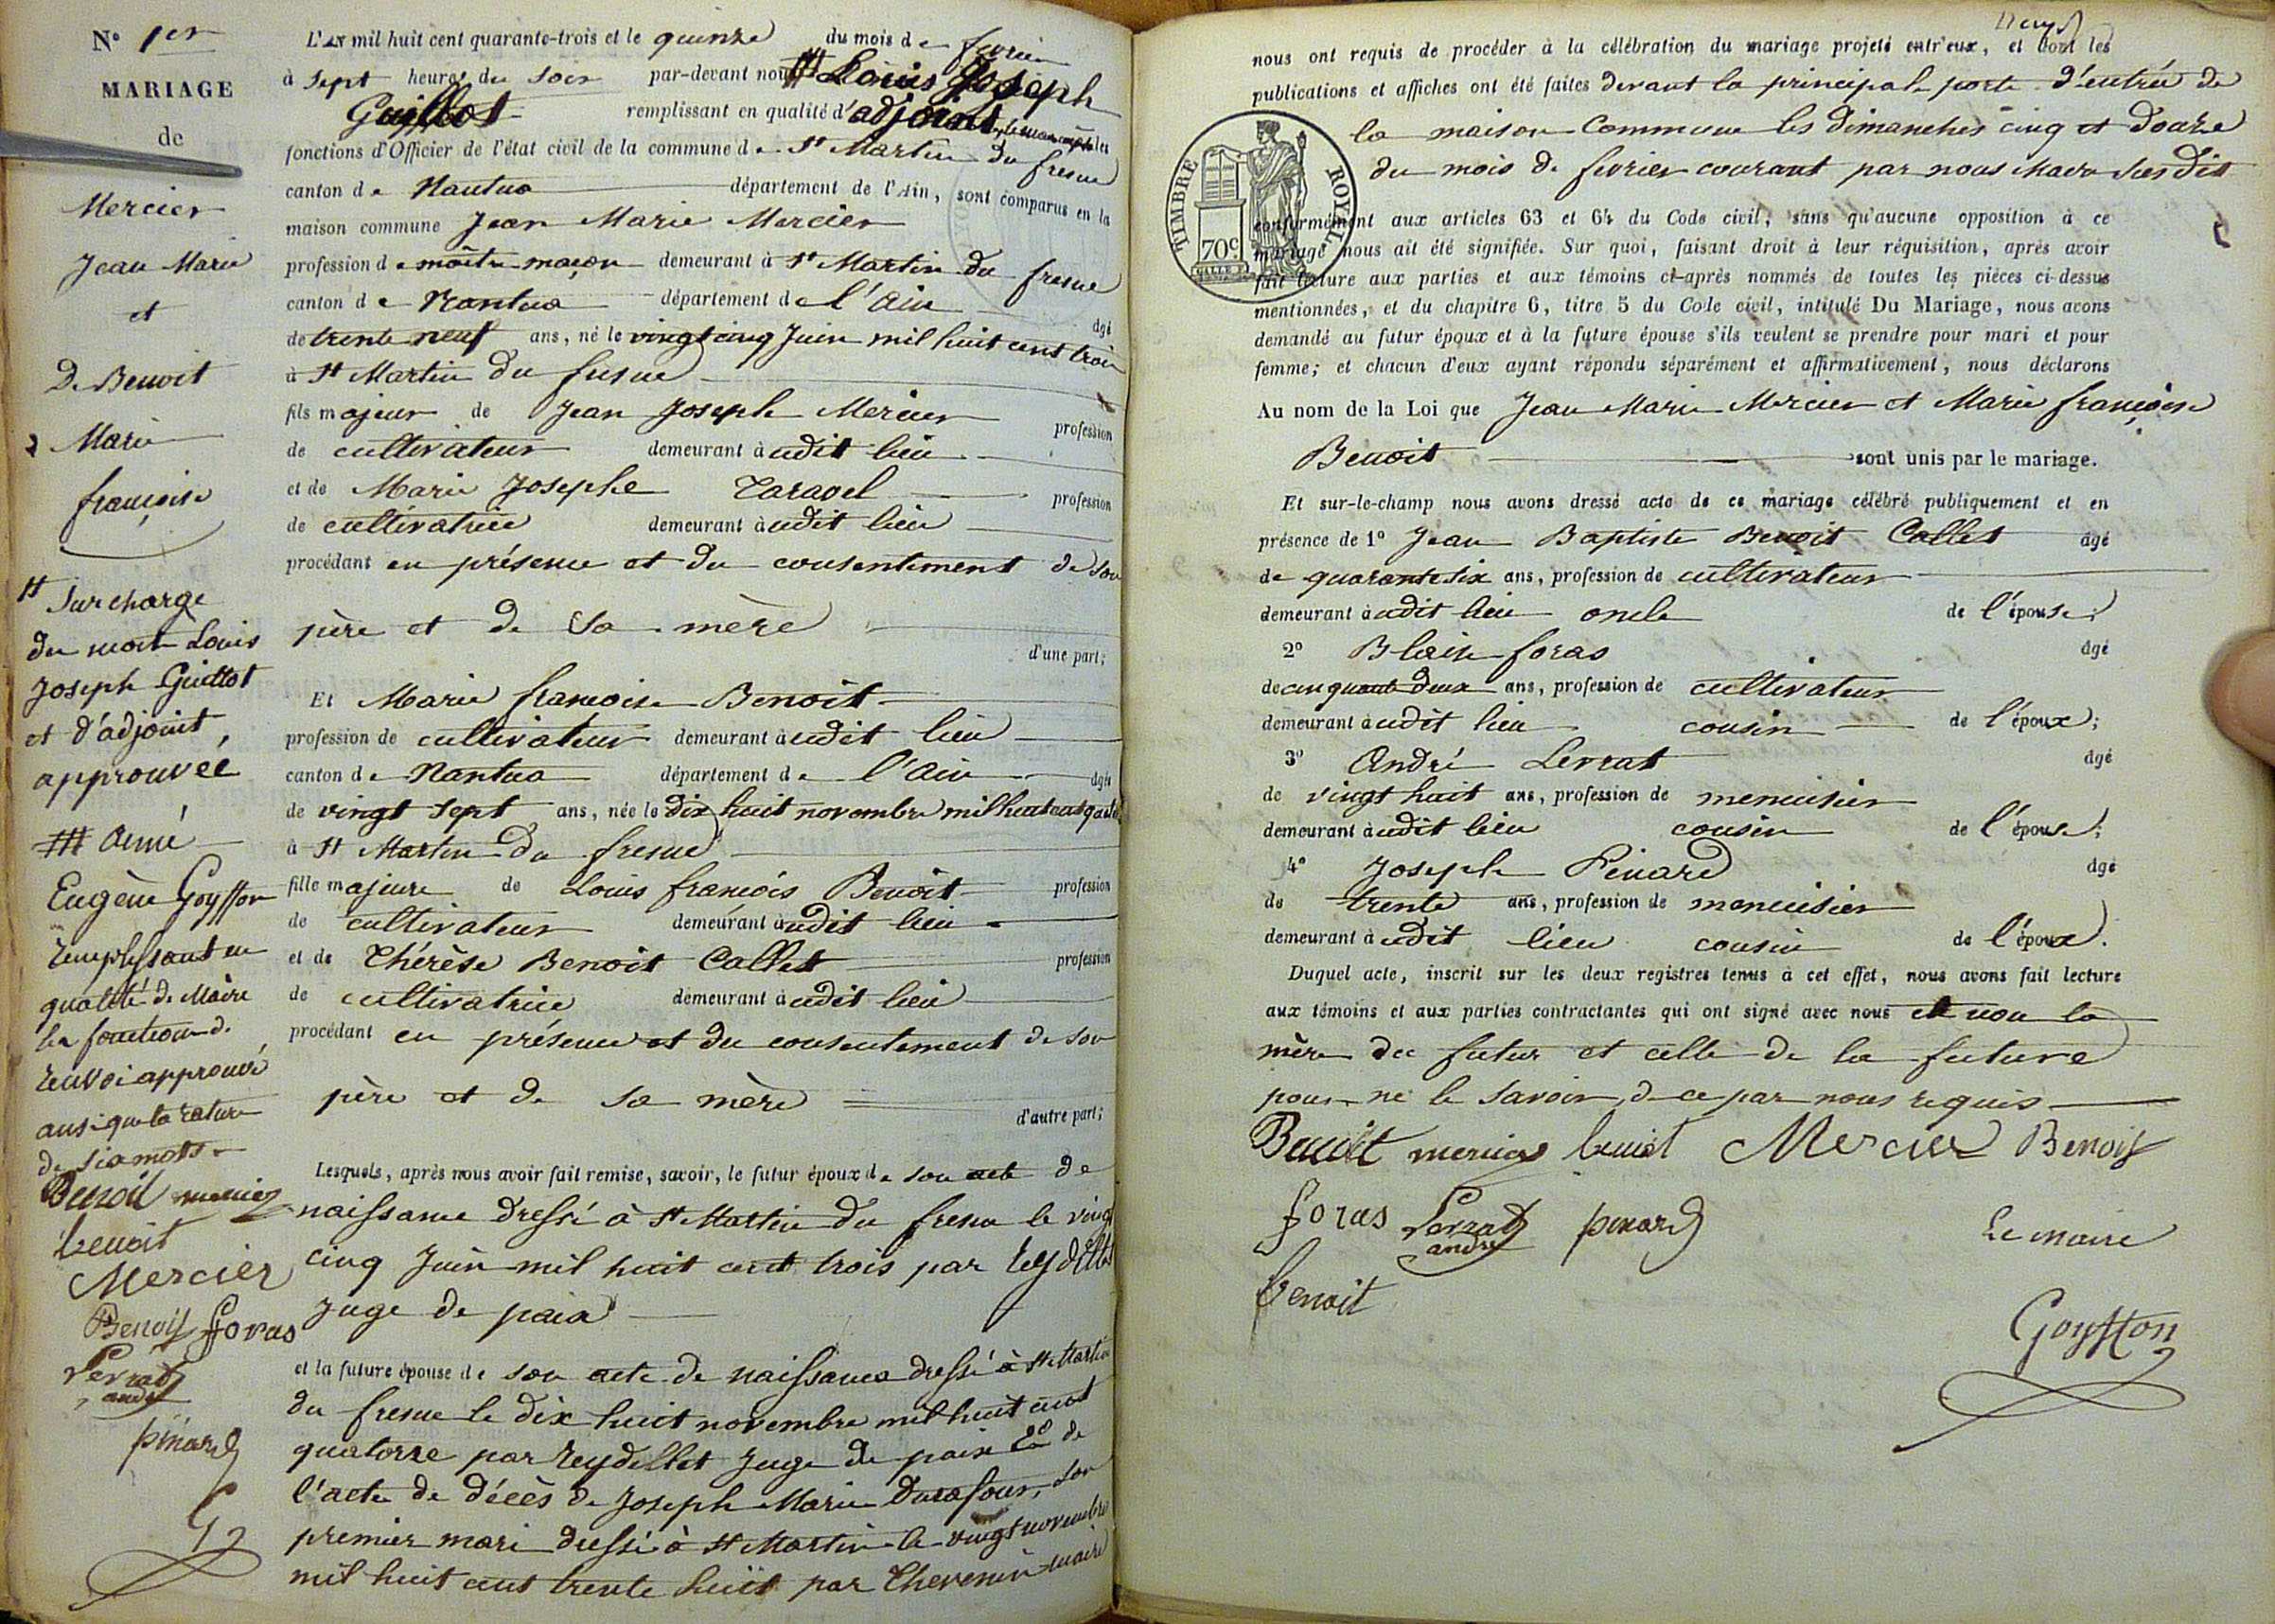 N° 1er
MARIAGE
de
Mercier
Jean Marie
et
De Benoit
Marie
françoise
# Surcharge
du mot Louis
Joseph Guillot
et d'adjoint,
approuvée
# Aimé
Eugène Goyffon
remplissant en
qualité de Maire
les fonctions d.
renvoi approuvé
ainsi que la rature
de six mots.
Benoit mercier
benoit
Mercier
Benoit foras
Levrat
andré
pinard
G
L'AN mil huit cent quarante-trois et le quinze du mois de fevrier
à sept heures du soir par-devant nous # Louis Joseph
Guillot remplissant en qualité d'adjoint les
fonctions d'Officier de l'état civil de la commune de St Martin du fresne
canton de Nantua département de l'Ain, sont comparus en la
maison commune Jean Marie Mercier
profession de maître maçon demeurant à St Martin du fresne
canton de Nantua département de l'Ain âgé
de trente neuf ans, né le vingt cinq Juin mil huit cent trois
à St Martin du fresne
fils majeur de Jean Joseph Mercier profession
de cultivateur demeurant àudit lieu
et de Marie Josephe Taravel profession
de cultivatrice demeurant àudit lieu
procédant en présence et du consentement de son
père et de sa mère
d'une part;
Et Marie francoise Benoit
profession de cultivateur demeurant àudit lieu
canton de Nantua département de l'Ain âgée
de vingt sept ans, née le dix huit novembre mil huit cent
à St Martin du fresne
fille majeure de Louis francois Benoit profession
de cultivateur demeurant àudit lieu
et de Thérèse Benoit Callet profession
de cultivatrice demeurant àudit lieu
procédant en présence et du consentement de son
père et de sa mère
d'autre part;
Lesquels, après nous avoir fait remise, savoir, le futur époux de son acte de
naissance dressé à St Martin du fresne le vingt
cinq Juin mil huit cent trois par reydellet
Juge de paix
et la future épouse de son acte de naissance dressé à St Martin
du fresne le dix huit novembre mil huit cent
quatorze par reydellet Juge de paix 2° de
l'acte de décès de Joseph Marie Durafour, son
premier mari dressé à St Martin le vingt novembre
mil huit cent trente huit par Thevenin maire
nous ont requis de procéder à la célébration du mariage projeté entr'eux, et dont les
publications et affiches ont été faites devant la principale porte d'entrée de
la maison commune les dimanches cinq et douze
du mois de fevrier courant par nous maire susdit
TIMBRE ROYAL
70c
conformément aux articles 63 et 64 du Code civil, sans qu'aucune opposition à ce
mariage nous ait été signifiée. Sur quoi, faisant droit à leur réquisition, après avoir
fait lecture aux parties et aux témoins ci-après nommés de toutes les pièces ci-dessus
mentionnées, et du chapitre 6, titre 5 du Code civil, intitulé Du Mariage, nous avons
demandé au futur époux et à la future épouse s'ils veulent se prendre pour mari et pour
femme; et chacun d'eux ayant répondu séparément et affirmativement, nous déclarons
Au nom de la Loi que Jean Marie Mercier et Marie françoise
Benoit sont unis par le mariage.
Et sur-le-champ nous avons dressé acte de ce mariage célébré publiquement et en
présence de 1° Jean Baptiste Benoit Callet âgé
de quarante six ans, profession de cultivateur
demeurant àudit lieu oncle de l'épouse;
2° Blaise foras âgé
de cinquante deux ans, profession de cultivateur
demeurant àudit lieu cousin de l'époux;
3° André Levrat âgé
de vingt huit ans, profession de menuisier
demeurant àudit lieu cousin de l'épouse;
4° Joseph Pinard âgé
de trente ans, profession de menuisier
demeurant àudit lieu cousin de l'époux.
Duquel acte, inscrit sur les deux registres tenus à cet effet, nous avons fait lecture
aux témoins et aux parties contractantes qui ont signé avec nous et non la
mère du futur et celle de la future
pour ne le savoir, de ce par nous requis
Benoit mercier benoit Mercier Benoit
foras Levrat pinard
andré
Le maire
benoit
Goyffon